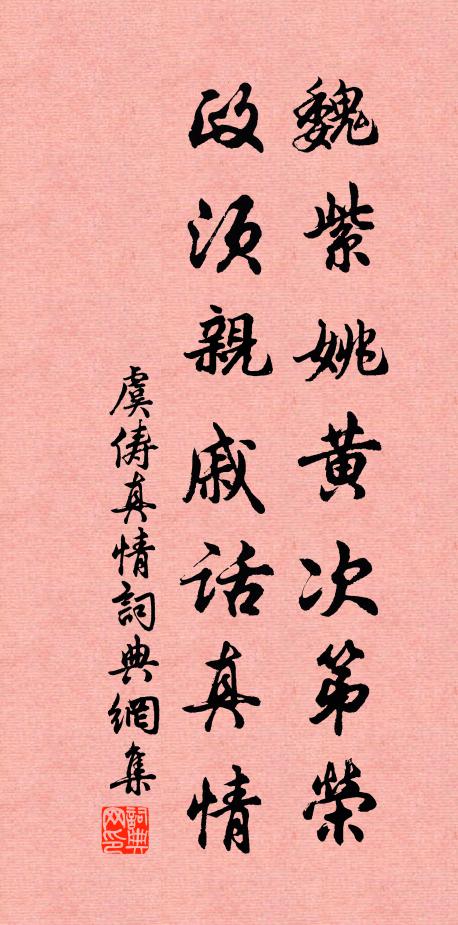 魏紫姚黄次第榮
政須親戚話真情
虞儔真情詞典網集
詞典网印